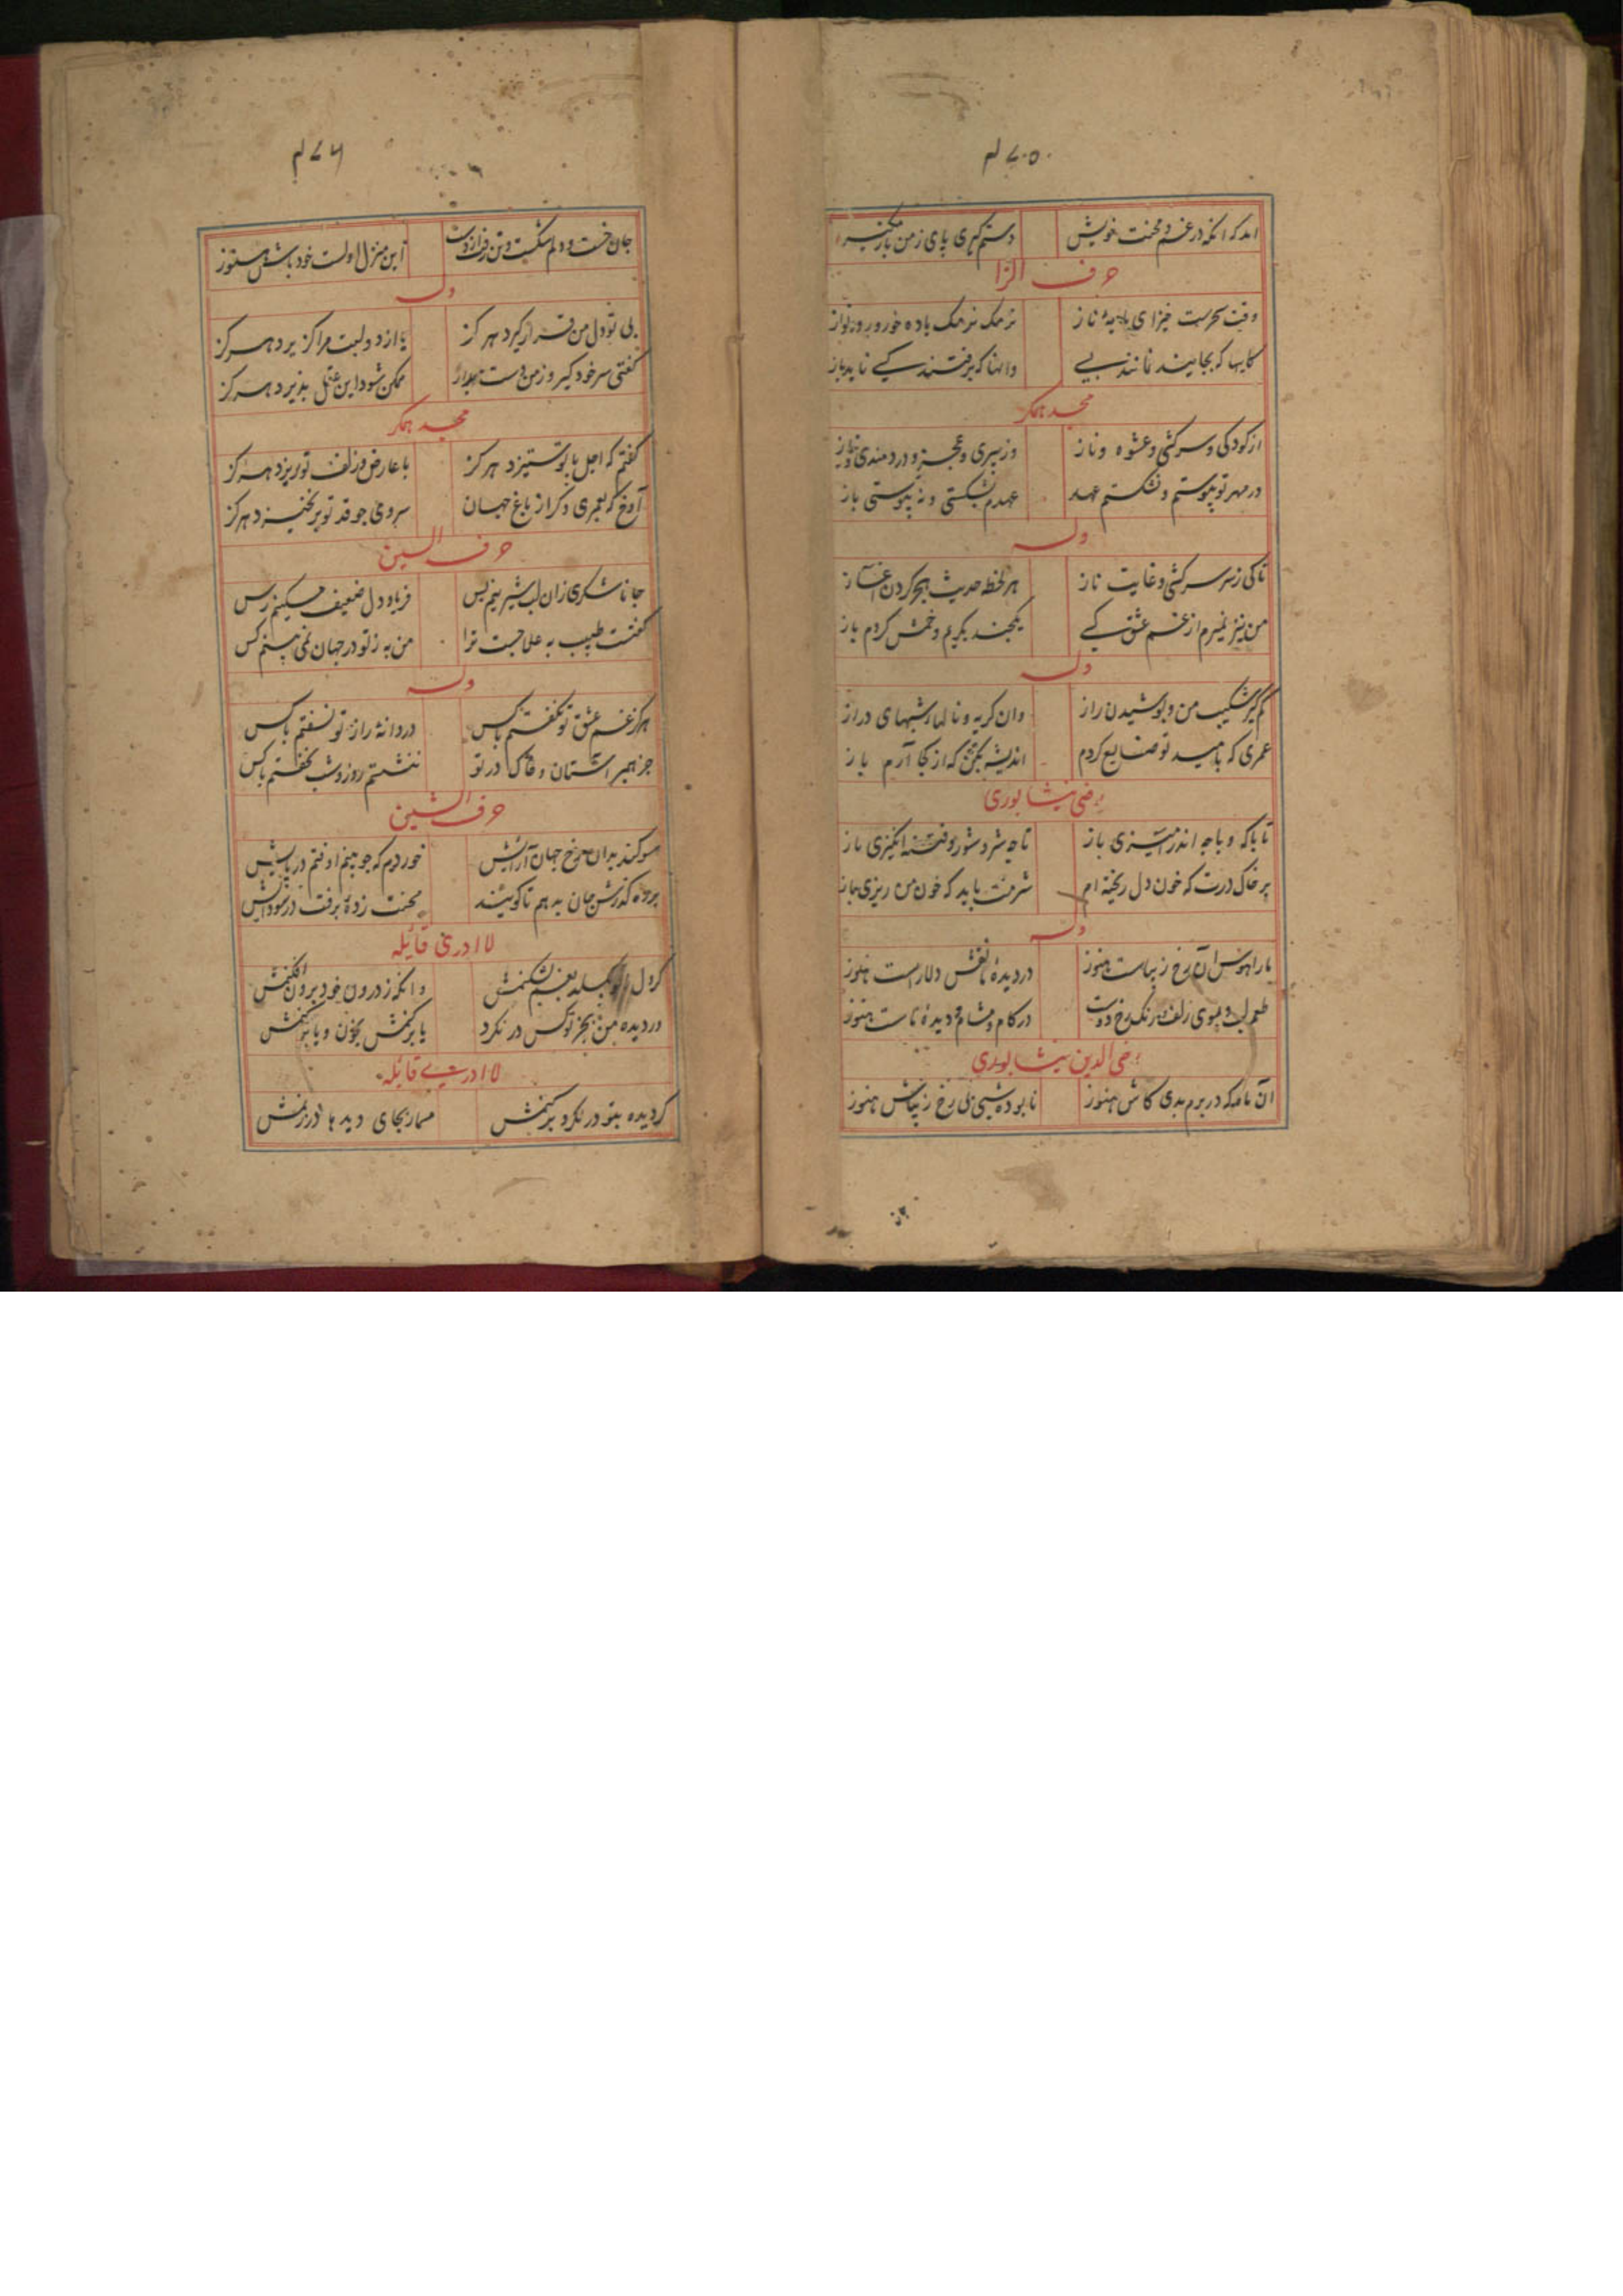 ۴۷۰۵
دستم گیری پای ز من باز مگیر
حرف الزا
وقت سحرست خیز ای مایهٔ ناز نرمک نرمک باده خور و رود نواز
کاینها که بجایند نمانند بسے وانها که برفتند کسے ناید باز
مجد همکر
از کودکی و سرکشی و عشوه و ناز وز پیری و عجز و دردمندی و نیاز
در مهر تو پیوستم و نشکستم عهد عهدم بشکستی و نه پیوستی باز
وله
تا کی ز سر سرکشی و غایت ناز هر لحظه حدیث هجر کردن آغاز
من نیز نمیرم از غم عشق کسے یکچند بگریم و خمش کردم باز
وله
کم گیر شکیب من و پوشیدن راز وان گریه و نالها و شبهای دراز
عمری که بامید تو ضایع کردم اندیشه بکن که از کجا آرم باز
رضی نیشابوری
تا باکه و با چه اندر آمیزی باز تا چه شر و شور و فتنه انگیزی باز
بر خاک درت که خون دل ریخته ام شرمت باید که خون من ریزی باز
وله
مارا هوس آن رخ زیباست هنوز در دیدهٔ ما نقش دلاراست هنوز
طعم لب و بوی زلف و رنگ رخ دوست در کام و مشام و دیدهٔ ماست هنوز
رضی الدین نیشابوری
آن ماه که در برم بدی کاش هنوز نابوده شبی بی رخ زیباش هنوز
۴۷۶
جان خست و دلم شکست و تن این منزل اولست خود باش هنوز
وله
بی تو دل من قرار گیرد هرگز یا از دو لبت مرا گزیرد هرگز
گفتی سر خود گیر و ز من دست بدار ممکن شود این عقل پذیرد هرگز
مجد همکر
گفتم که اجل با تو ستیزد هرگز با عارض و زلف تو بریزد هرگز
آوخ که بمردی و گر از باغ جهان سروی چو قد تو برنخیزد هرگز
حرف السین
جانا شکری زان لب شیرینم بس فریاد دل ضعیف مسکینم رس
گفتست طبیب به علاجیست ترا من به ز تو در جهان نمی بینم کس
وله
هرگز غم عشق تو نگفتم باکس دردانهٔ راز تو نسفتم باکس
جز بر سر آستان و خاک در تو ننشستم روز و شب نخفتم باکس
حرف الشین
سوگند بدان رخ جهان آرایش خوردم که چو بینم اوفتم در پایش
بر ره گذرش جان بدهم تا گویند محنت زدهٔ برفت در سودایش
لا ادری قائله
گر دل بغم بشکنمش وانکه ز درون خود برون افکنمش
در دیده من بجز تو کس در نگرد یا برکنمش بخون و یا برکنمش
لا ادرے قائله
گر دیده بتو در نگرد برکنمش مسمار بجای دیدها در زنمش